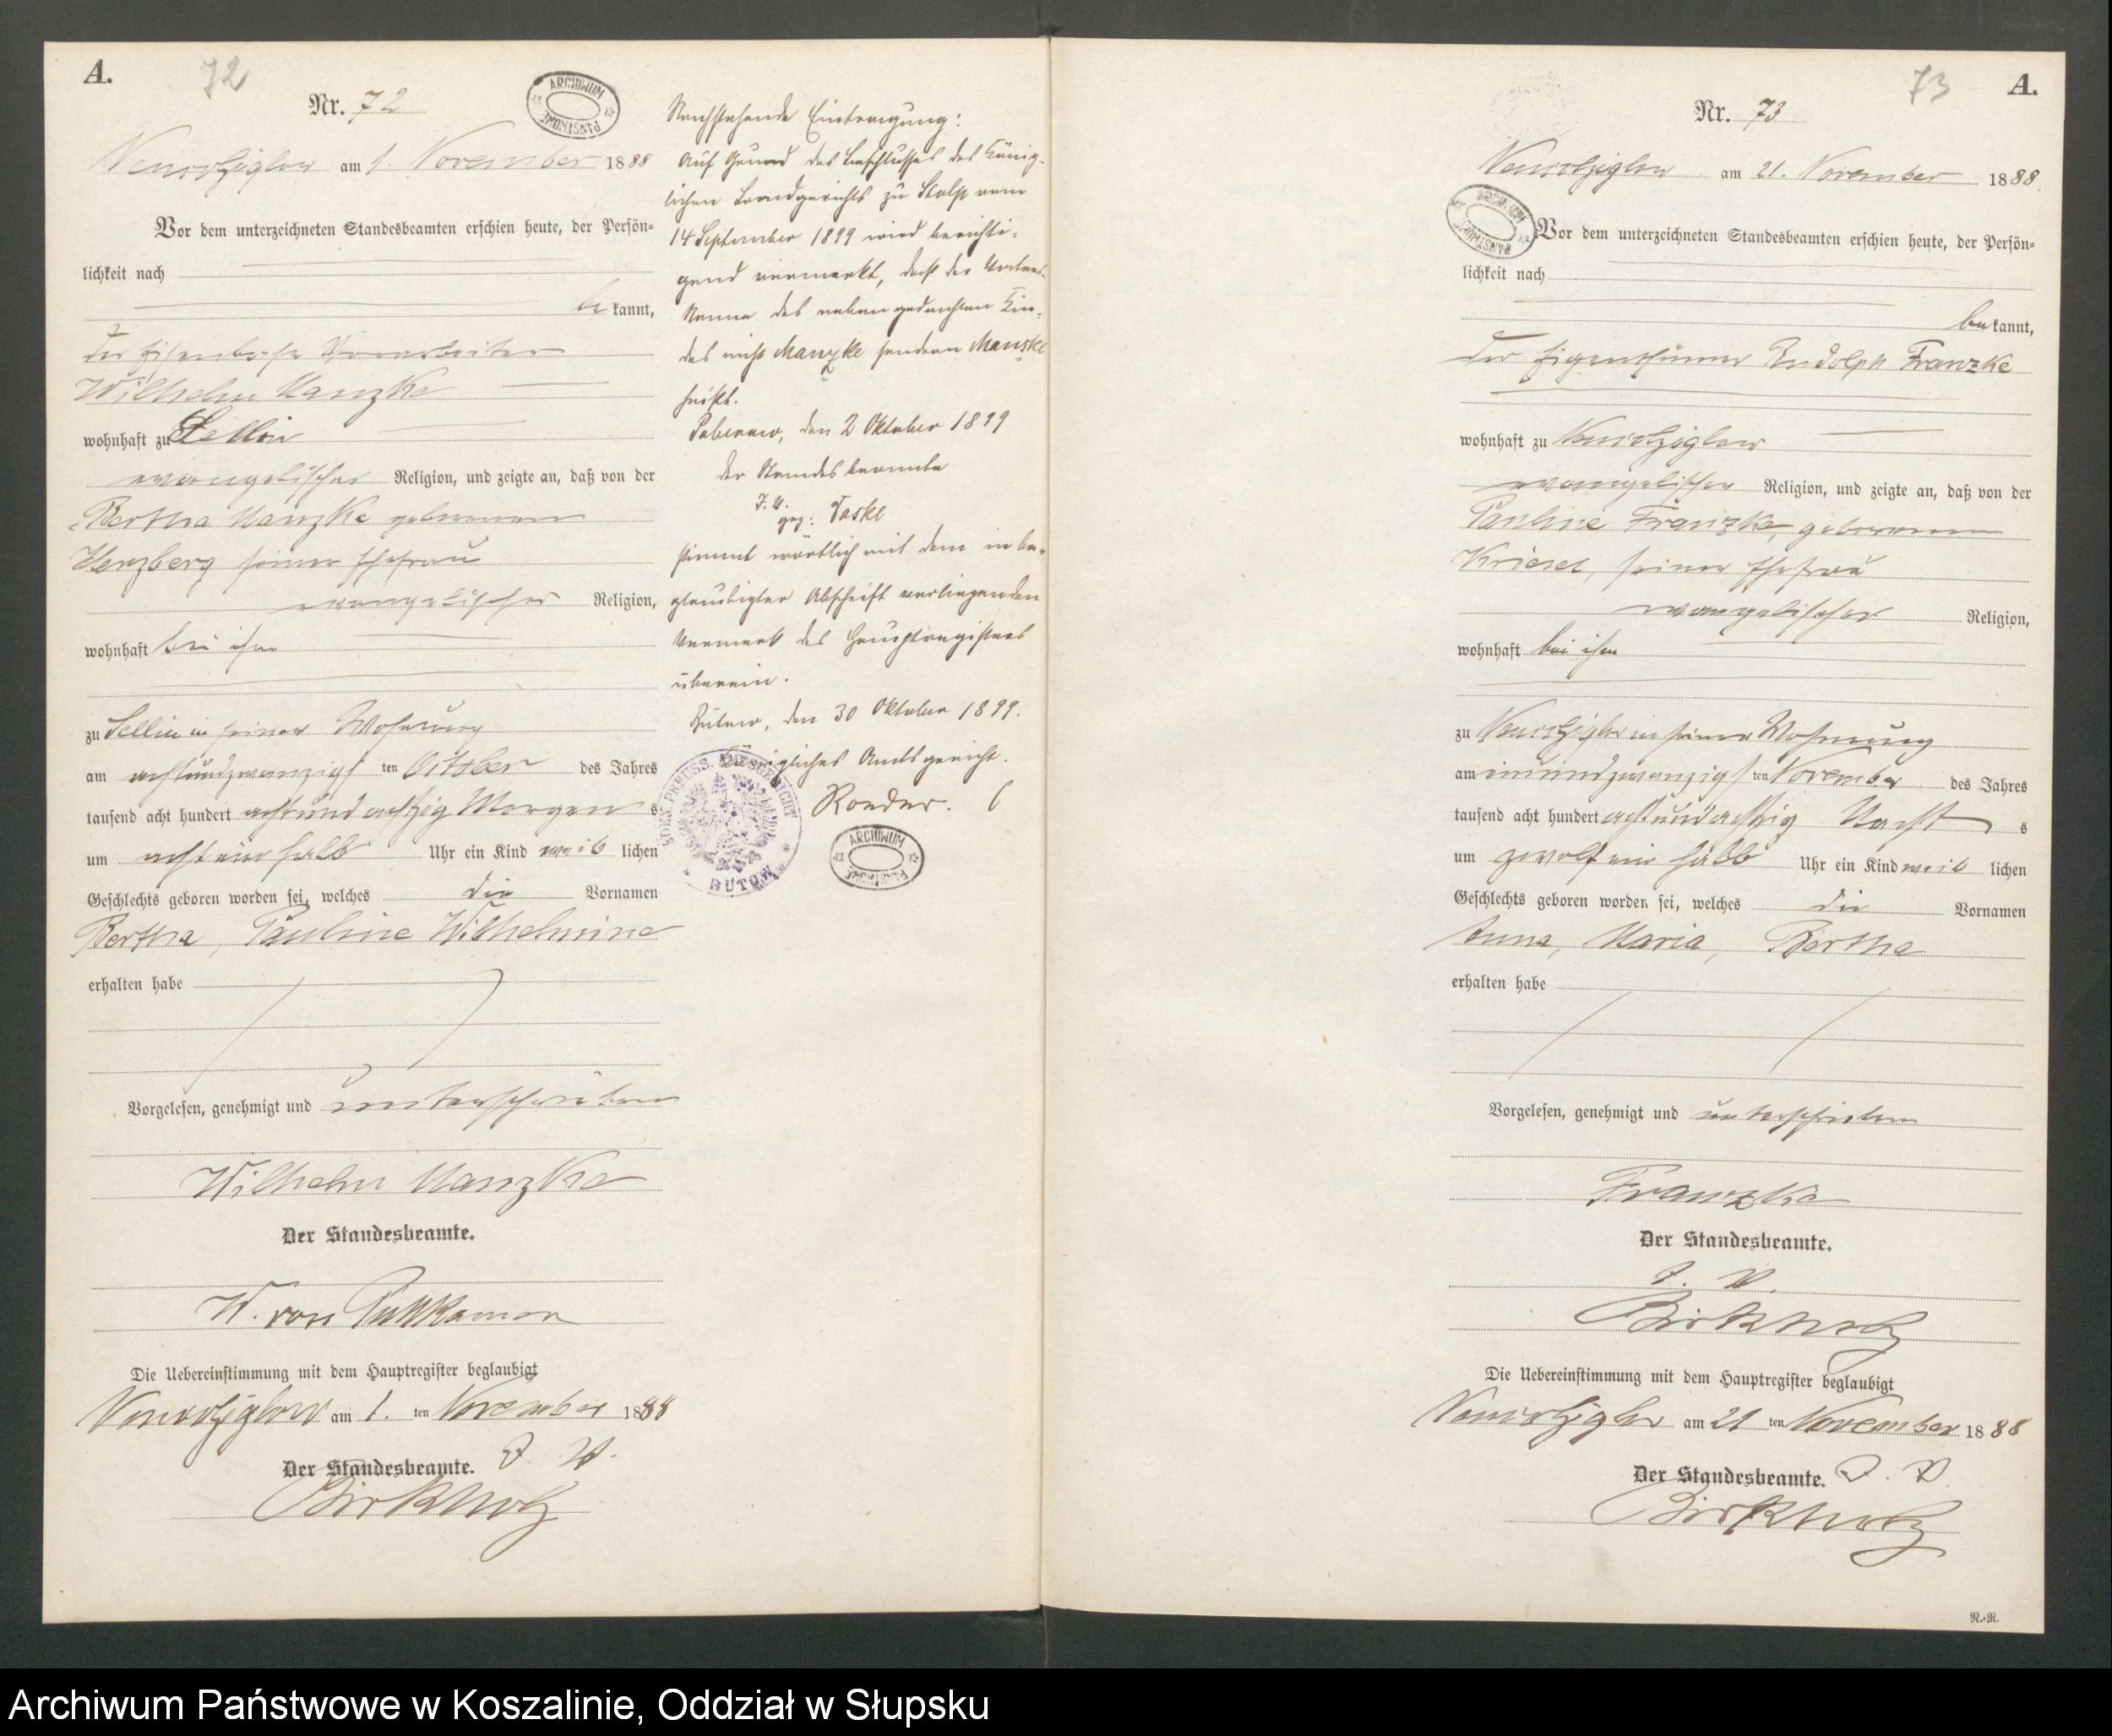 A.
72
Nr. 72
ARCHIWUM PAŃSTWOWE
am 1. November 1888
Vor dem unterzeichneten Standesbeamten erschien heute, der Persön=
lichkeit nach
be kannt,
der Eisenbahn Vorarbeiter
Wilhelm Manzke
wohnhaft zu Sellin
evangelischer Religion, und zeigte an, daß von der
Bertha Manzke geborenen
Herzberg seiner Ehefrau
evangelischer Religion,
wohnhaft bei ihm
zu Sellin in seiner Wohnung
am achtundzwanzigsten October des Jahres
tausend acht hundert achtundachtzig Morgens
um acht ein halb Uhr ein Kind weib lichen
Geschlechts geboren worden sei, welches die Vornamen
Bertha, Pauline Wilhelmine
erhalten habe
Vorgelesen, genehmigt und unterschrieben
Wilhelm Manzke
Der Standesbeamte.
W. von Puttkamer
Die Uebereinstimmung mit dem Hauptregister beglaubigt
am 1. ten November 1888
Der Standesbeamte. I. V.
Birkholz
Nachstehende Eintragung:
Auf Grund des Beschlusses des König-
lichen Landgerichts zu Stolp vom
14 September 1899 wird berichti-
gend vermerkt, daß der Vaters-
Name des nebengedachten Kin-
des nicht Manzke sondern Manske
heißt.
den 2 Oktober 1899
der Standesbeamte
I. V.
gez: Taske
stimmt wörtlich mit dem in be-
glaubigter Abschrift vorliegenden
Vermerk des Hauptregisters
überein.
Bütow, den 30 Oktober 1899.
Königliches Amtsgericht.
Roeder.
KOEN. PREUSS. AMTSGERICHT
* BÜTOW *
ARCHIWUM PAŃSTWOWE
73
A.
Nr. 73
am 21. November 1888
ARCHIWUM PAŃSTWOWE
Vor dem unterzeichneten Standesbeamten erschien heute, der Persön=
lichkeit nach
be kannt,
der Eigenthümer Rudolph Franzke
wohnhaft zu
evangelischer Religion, und zeigte an, daß von der
Pauline Franzke, geborenen
Kriesel, seiner Ehefrau
evangelischer Religion,
wohnhaft bei ihm
zu in seiner Wohnung
am einundzwanzigsten November des Jahres
tausend acht hundert achtundachtzig Nachts
um zwölf ein halb Uhr ein Kind weib lichen
Geschlechts geboren worden sei, welches die Vornamen
Anna, Maria, Bertha
erhalten habe
Vorgelesen, genehmigt und unterschrieben
Franzke
Der Standesbeamte.
I. V.
Birkholz
Die Uebereinstimmung mit dem Hauptregister beglaubigt
am 21 ten November 1888
Der Standesbeamte. I. V.
Birkholz
N.-N.
Archiwum Państwowe w Koszalinie, Oddział w Słupsku